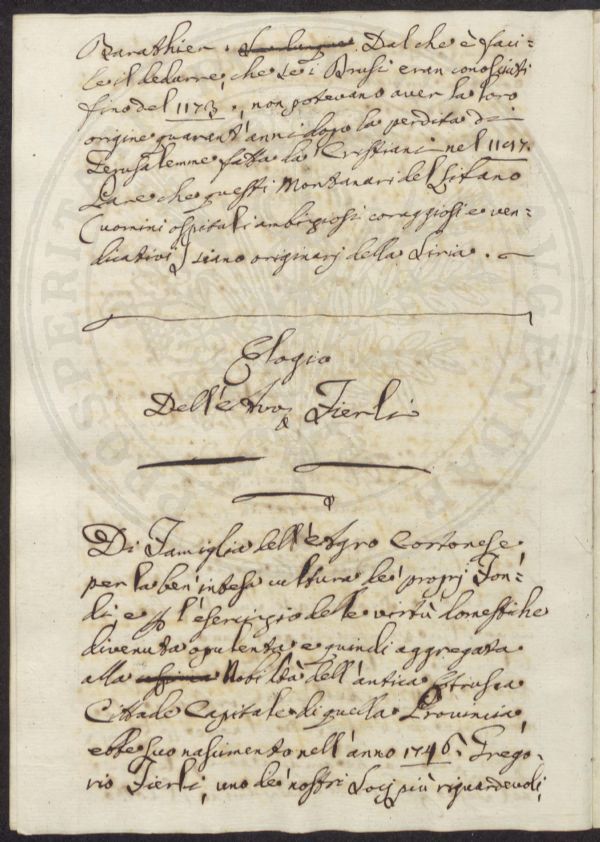 Barathier. Dal che è faci=
le il dedurre, che se i Drusi eran conosciuti
fino del 1173., non potevano aver la loro
origine quarant'anni dopo la perdita di
Gerusalemme fatta da' Cristiani nel 1197.
Pare che questi Montanari del Libano
(uomini ospitali ambiziosi coraggiosi e ven=
dicativi) siano originarj della Siria.
Elogio
Dell'Avo Fierli
Di Famiglia dell'Agro Cortonese
per la ben'intesa cultura de' proprj Fon=
di, e p l'esercizio delle virtù domestiche
divenuta opulenta e quindi aggregata
alla Nobiltà dell'antica Etrusca
Città Capitale di quella Provincia,
ebbe suo nascimento nell'anno 1746. Grego=
rio Fierli, uno de' nostri Socj più riguardevoli,
PROSPERITATI AUGENDAE